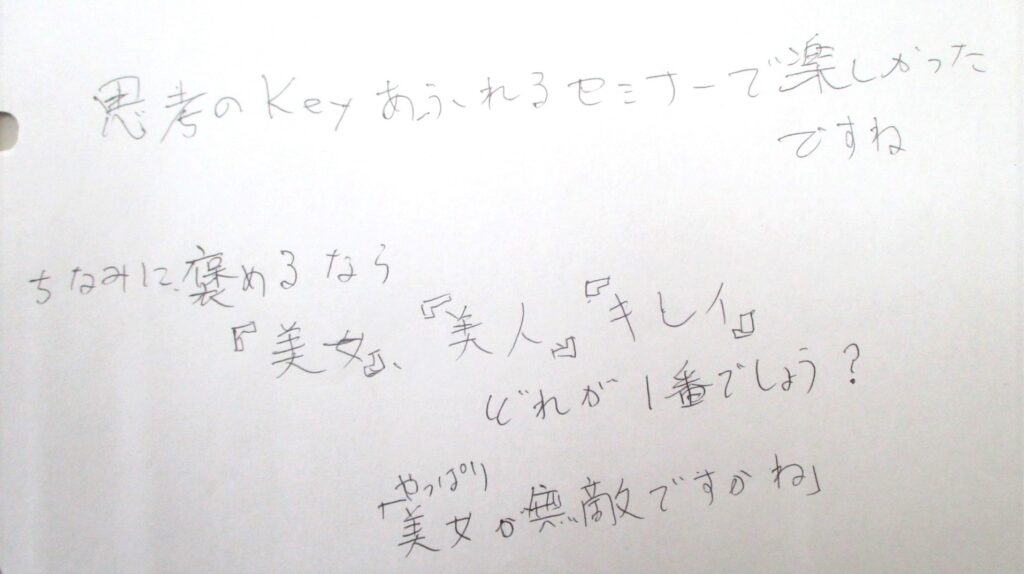 思考のKeyあふれるセミナーで楽しかった
ですね
ちなみに褒めるなら
『美女』、『美人』『キレイ』
どれが1番でしょう？
「やっぱり
美女が無敵ですかね」